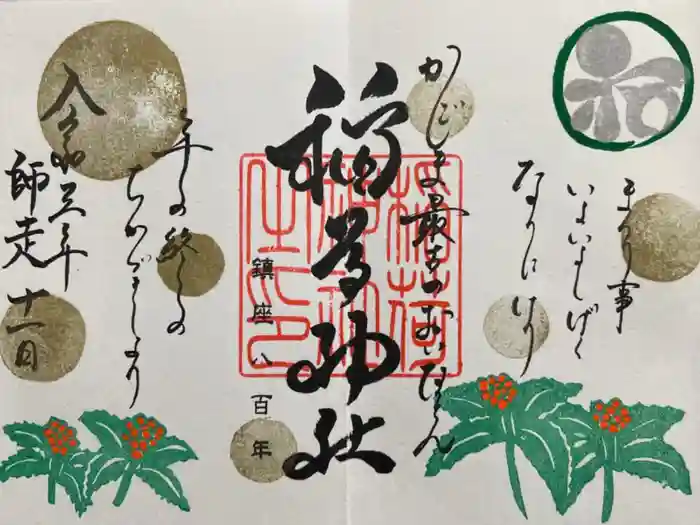 まつり事
いよいよしげく
なりにけり
かごしま最古のおいなりさん
稲荷神社
稲荷神社之印
鎮座八百年
年の終りの
ちかづきしより
令和三年
師走十一日